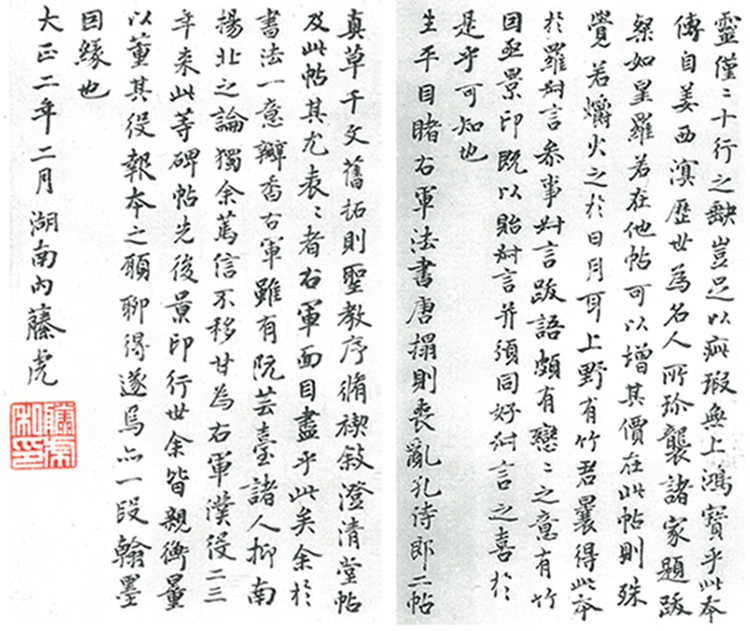 靈僅〻十行之缺豈足以疵瑕無上鴻寶乎此本
傳自姜西溟歷世為名人所珍襲諸家題跋
粲如星羅若在他帖可以增其價在此帖則殊
覺若爝火之於日月耳上野有竹君曩得此本
於羅叔言參事叔言跋語頗有戀〻之意有竹
因亟景印既以貽叔言并頒同好叔言之喜於
是乎可知也
生平目睹右軍法書唐搨則喪亂孔侍郎二帖
真草千文舊拓則聖教序脩禊敘澄清堂帖
及此帖其尤表〻者右軍面目盡乎此矣余於
書法一意瓣香右軍雖有阮芸臺諸人抑南
揚北之論獨余篤信不移甘為右軍僕役二三
年来此等碑帖先後景印行世余皆親衡量
以董其役報本之願聊得遂焉亦一段翰墨
因緣也
大正二年二月 湖南内藤虎
藤虎
私印